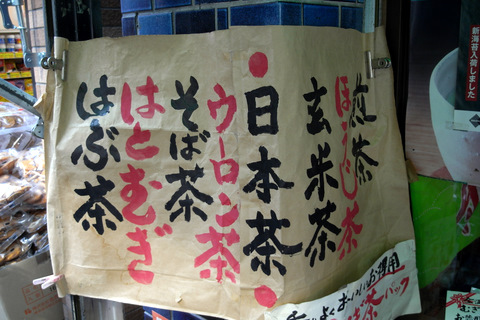 煎茶
ほうじ茶
玄米茶
日本茶
ウーロン茶
そば茶
はとむぎ
はぶ茶
新海苔入荷しました